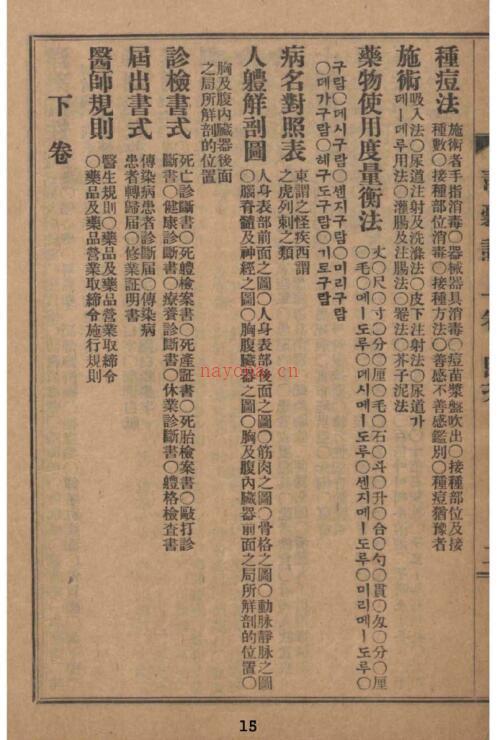 種痘法
施術者手指消毒○器械器具消毒○痘苗漿盤吹出○接種部位及接
種數○接種部位消毒○接種方法○善感不善感鑑別○種痘猶豫者
施術
吸入法○尿道注射及洗滌法○皮下注射法○尿道가
데ー데루用法○灌腸及注腸法○罨法○芥子泥法
藥物使用度量衡法
丈○尺○寸○分○厘○毛○石○斗○升○合○勺○貫○匁○分○厘
○毛○메ー도루○데시메ー도루○센지메ー도루○미리메ー도루○
구람○데시구람○센지구람○미리구람
○데가구람○헤구도구람○기로구람
病名對照表
東謂之怪疾西謂
之虎列剌之類
人軆解剖圖
人身表部前面之圖○人身表部後面之圖○筋肉之圖○骨格之圖○動脉靜脉之圖
○腦脊髓及神經之圖○胸腹臟器之圖○胸及腹內臟器前面之局所解剖的位置○
胸及腹內臟器後面
之局所解剖的位置
診檢書式
死亡診斷書○死軆檢案書○死產証書○死胎檢案書○毆打診
斷書○健康診斷書○療養診斷書○休業診斷書○軆格檢査書
屆出書式
傳染病患者診斷屆○傳染病
患者轉歸屆○修業証明書
醫師規則
醫生規則○藥品及藥品營業取締令
○藥品及藥品營業取締令施行規則
下卷
nayona.cn
15